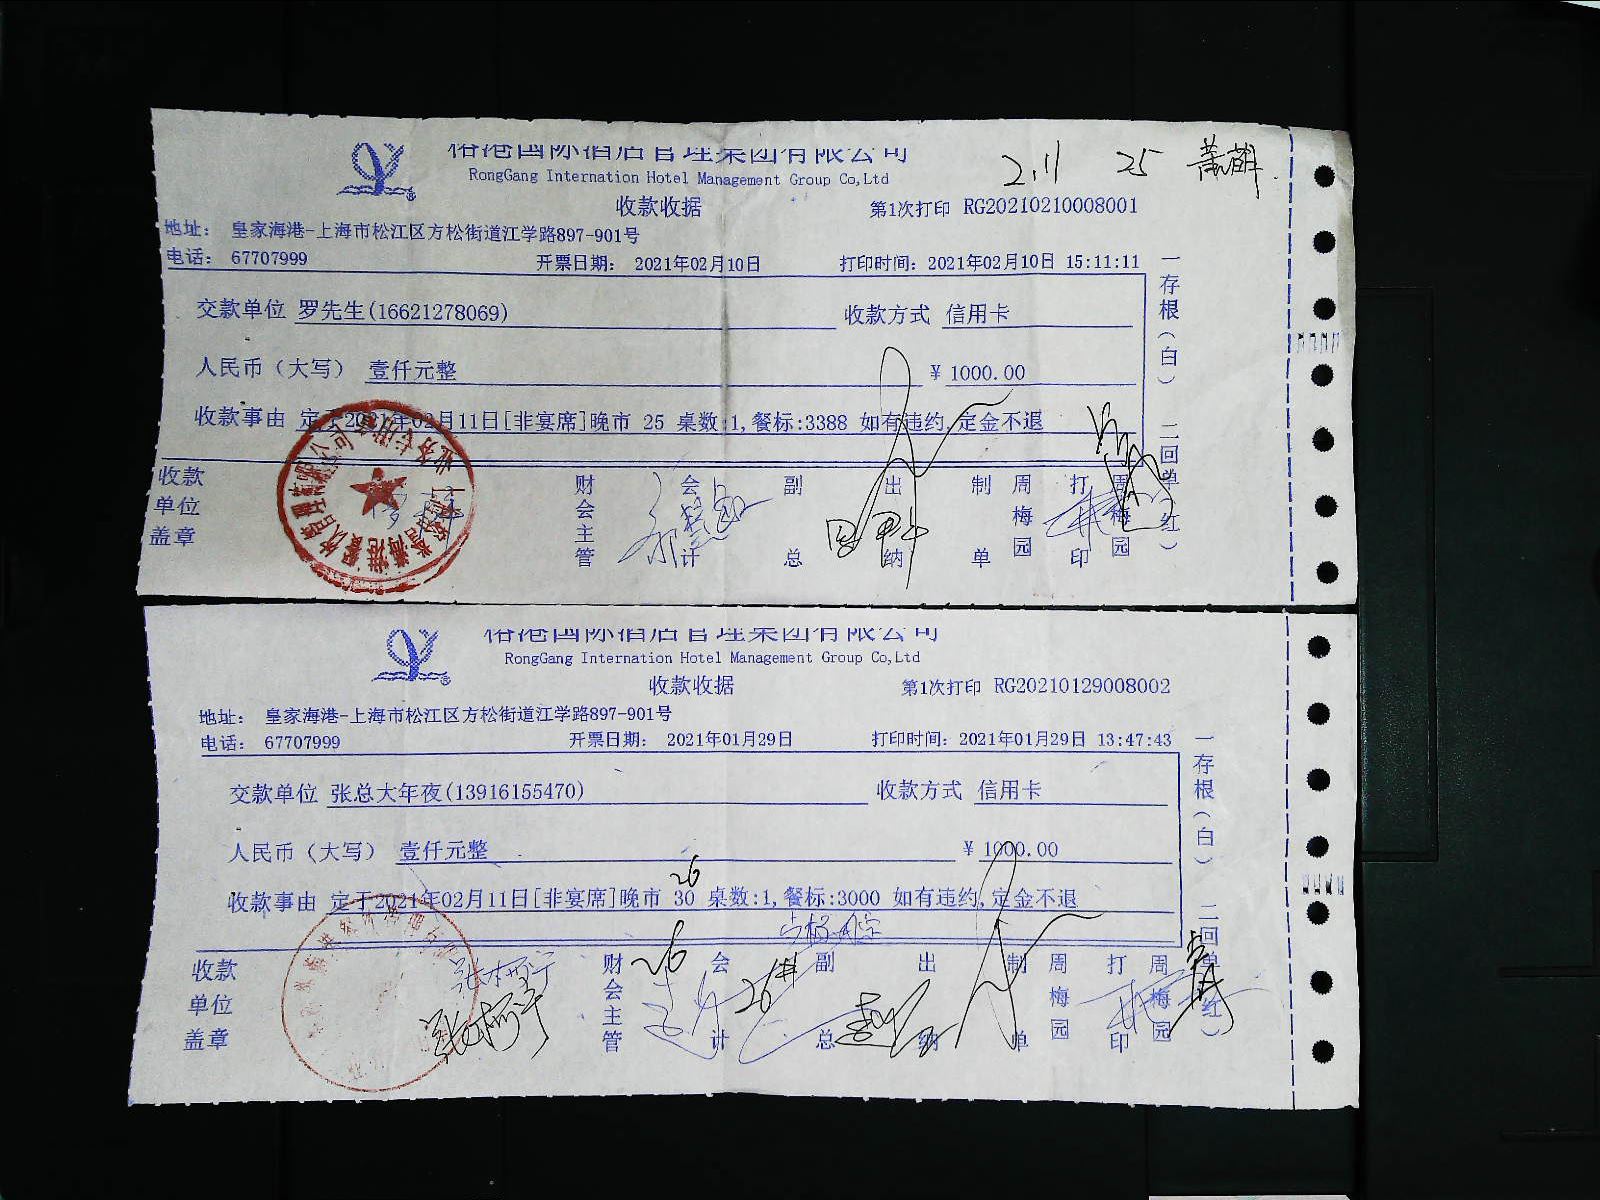 国际酒店管理集团有限公司
RongGang Internation Hotel Management Group Co,Ltd
2.11 25
收款收据
第1次打印 RG20210210008001
地址: 皇家海港-上海市松江区方松街道江学路897-901号
电话: 67707999
开票日期: 2021年02月10日
打印时间: 2021年02月10日 15:11:11
交款单位 罗先生(16621278069)
收款方式 信用卡
人民币(大写) 壹仟元整
¥ 1000.00
收款事由 定于2021年02月11日[非宴席]晚市 25 桌数:1,餐标:3388 如有违约,定金不退
收款单位盖章
财会主管
会计
副总
出纳
制单
周梅园
打印
周梅园
一存根(白) 二回单(红)
国际酒店管理集团有限公司
RongGang Internation Hotel Management Group Co,Ltd
收款收据
第1次打印 RG20210129008002
地址: 皇家海港-上海市松江区方松街道江学路897-901号
电话: 67707999
开票日期: 2021年01月29日
打印时间: 2021年01月29日 13:47:43
交款单位 张总大年夜(13916155470)
收款方式 信用卡
人民币(大写) 壹仟元整
¥ 1000.00
26
收款事由 定于2021年02月11日[非宴席]晚市 30 桌数:1,餐标:3000 如有违约,定金不退
收款单位盖章
财会主管
26
会计
26#
副总
出纳
制单
周梅园
打印
周梅园
一存根(白) 二回单(红)